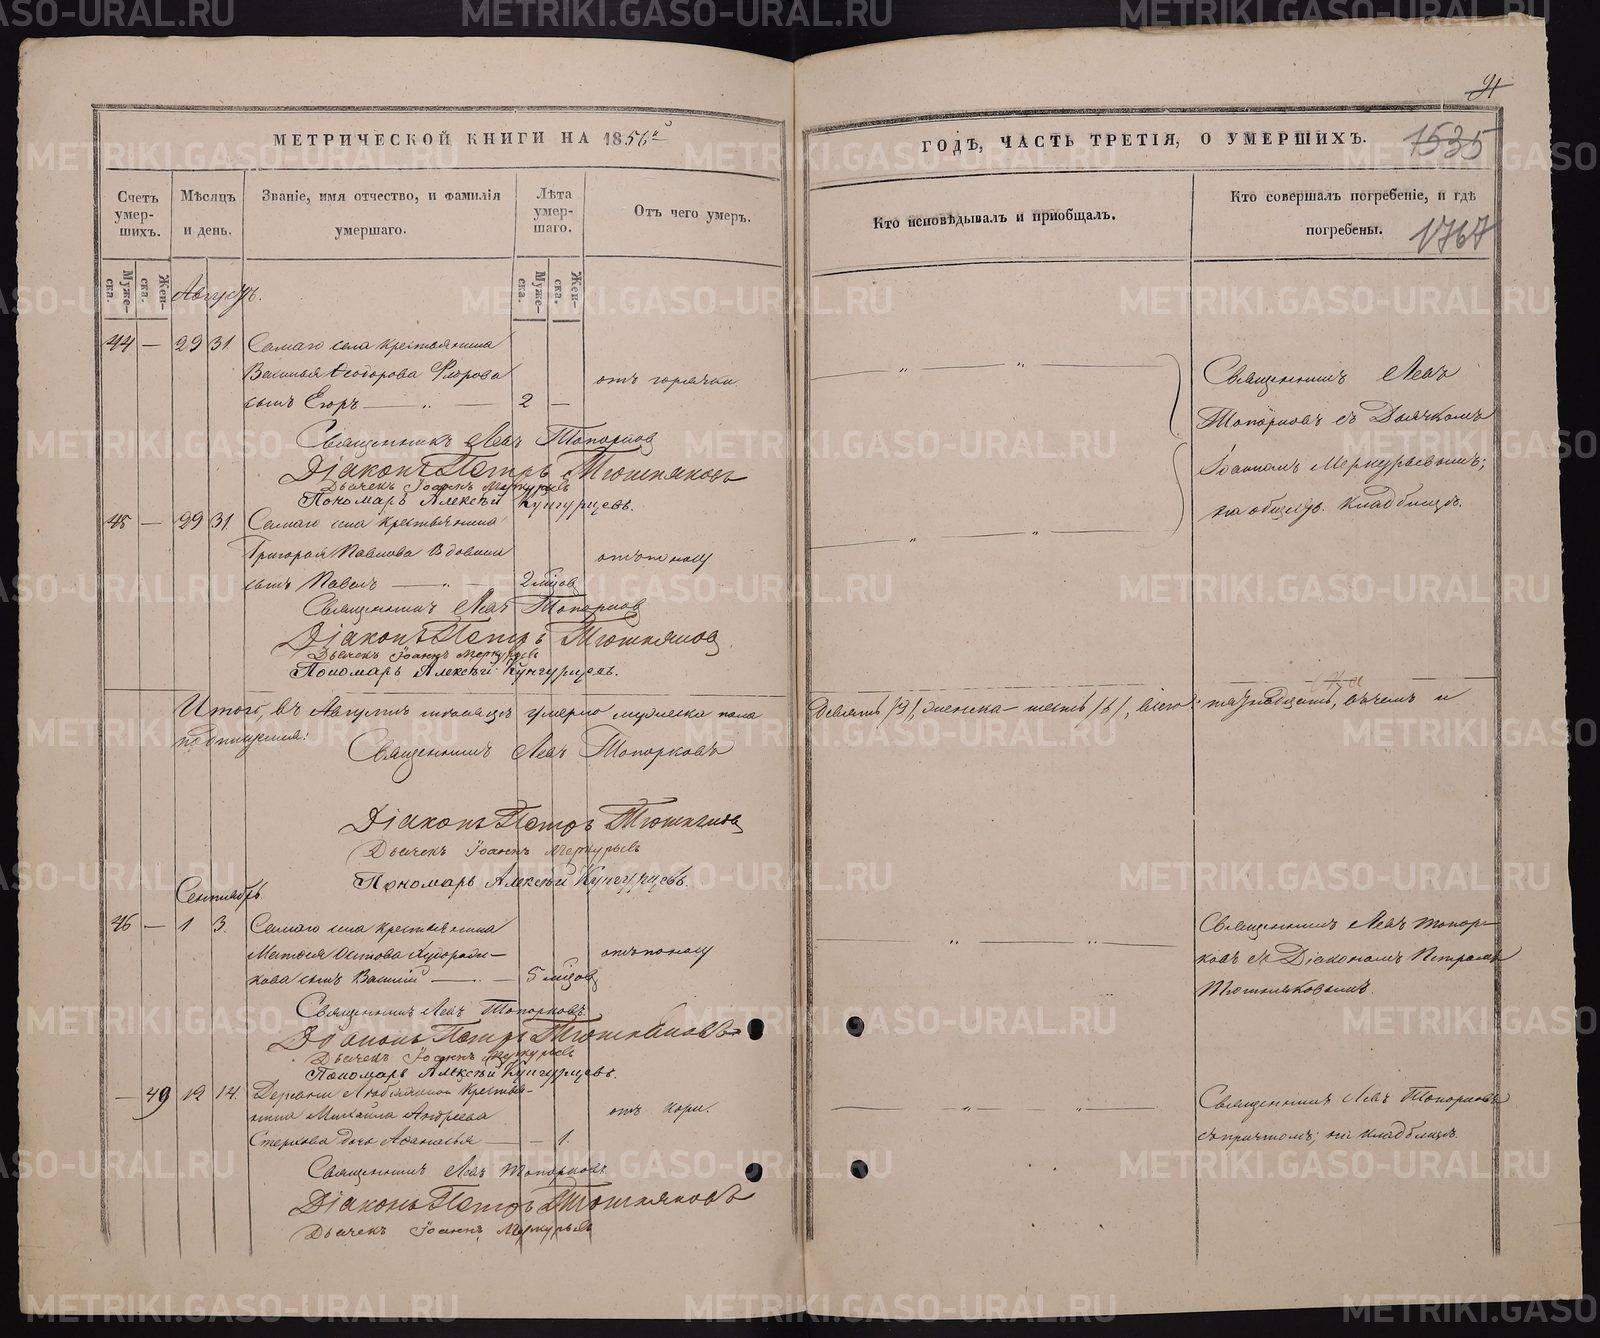 МЕТРИЧЕСКОЙ КНИГИ НА 1856й
Счетъ умер-шихъ.
Мѣсяцъ и день.
Званіе, имя отчество, и фамилія умершаго.
Лѣта умер-шаго.
Отъ чего умеръ.
Муже-ска.
Жен-ска.
Муже-ска.
Жен-ска.
Августъ.
44 — 29 31 Самаго села крестьянина
Василья Ѳеодорова Флорова
сынъ Егоръ — 2 —
отъ горячки
Священникъ Левъ Топорковъ
Діаконъ Петръ Тюшняковъ
Дьячекъ Іоаннъ Меркурьевъ
Пономарь Алексѣй Кунгурцевъ.
45 — 29 31 Самаго села крестьянина
Григорья Павлова Вдовина
сынъ Павелъ — 2 мѣсяцов
отъ поносу
Священникъ Левъ Топорков
Діаконъ Петръ Тюшняков
Дьячекъ Іоаннъ Меркурьевъ
Пономарь Алексѣй Кунгурцевъ.
Итого, въ Августѣ мѣсяцѣ умерло мужеска пола
подпишемся:
Священникъ Левъ Топорковъ
Діаконъ Петръ Тюшняков
Дьячекъ Іоаннъ Меркурьевъ
Пономарь Алексѣй Кунгурцевъ.
Сентябрь
46 — 1 3. Самаго села крестьянина
кова сынъ Василій — 5 мѣсяцов
отъ поносу
Священникъ Левъ Топорковъ
Діаконъ Петръ Тюшняковъ
Дьячекъ Іоаннъ Меркурьевъ
Пономарь Алексѣй Кунгурцевъ.
— 49 12 14. Деревни крестья-
нина Михаила Андреева
дочь Афанасья — 1.
отъ кори.
Священникъ Левъ Топорковъ
Діаконъ Петръ Тюшняковъ
Дьячекъ Іоаннъ Меркурьевъ
ГОДЪ, ЧАСТЬ ТРЕТІЯ, О УМЕРШИХЪ.
1535
Кто исповѣдывалъ и пріобщалъ.
Кто совершалъ погребеніе, и гдѣ погребены.
1767
Священникъ Левъ
Топорковъ съ Дьячкомъ
Іоанномъ Меркурьевымъ;
на общемъ кладбищѣ.
Девять /9/, женска — шесть /6/, всего: пятнадцать, въ чемъ и
Священникъ Левъ Топор-
ковъ съ Діакономъ Петромъ
Тюшняковымъ.
Священникъ Левъ Топорковъ
съ причтомъ; на кладбищѣ.
METRIKI.GASO-URAL.RU